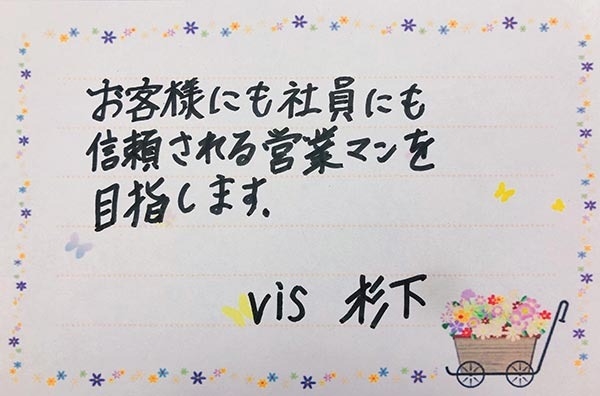 お客様にも社員にも
信頼される営業マンを
目指します.
vis 杉下